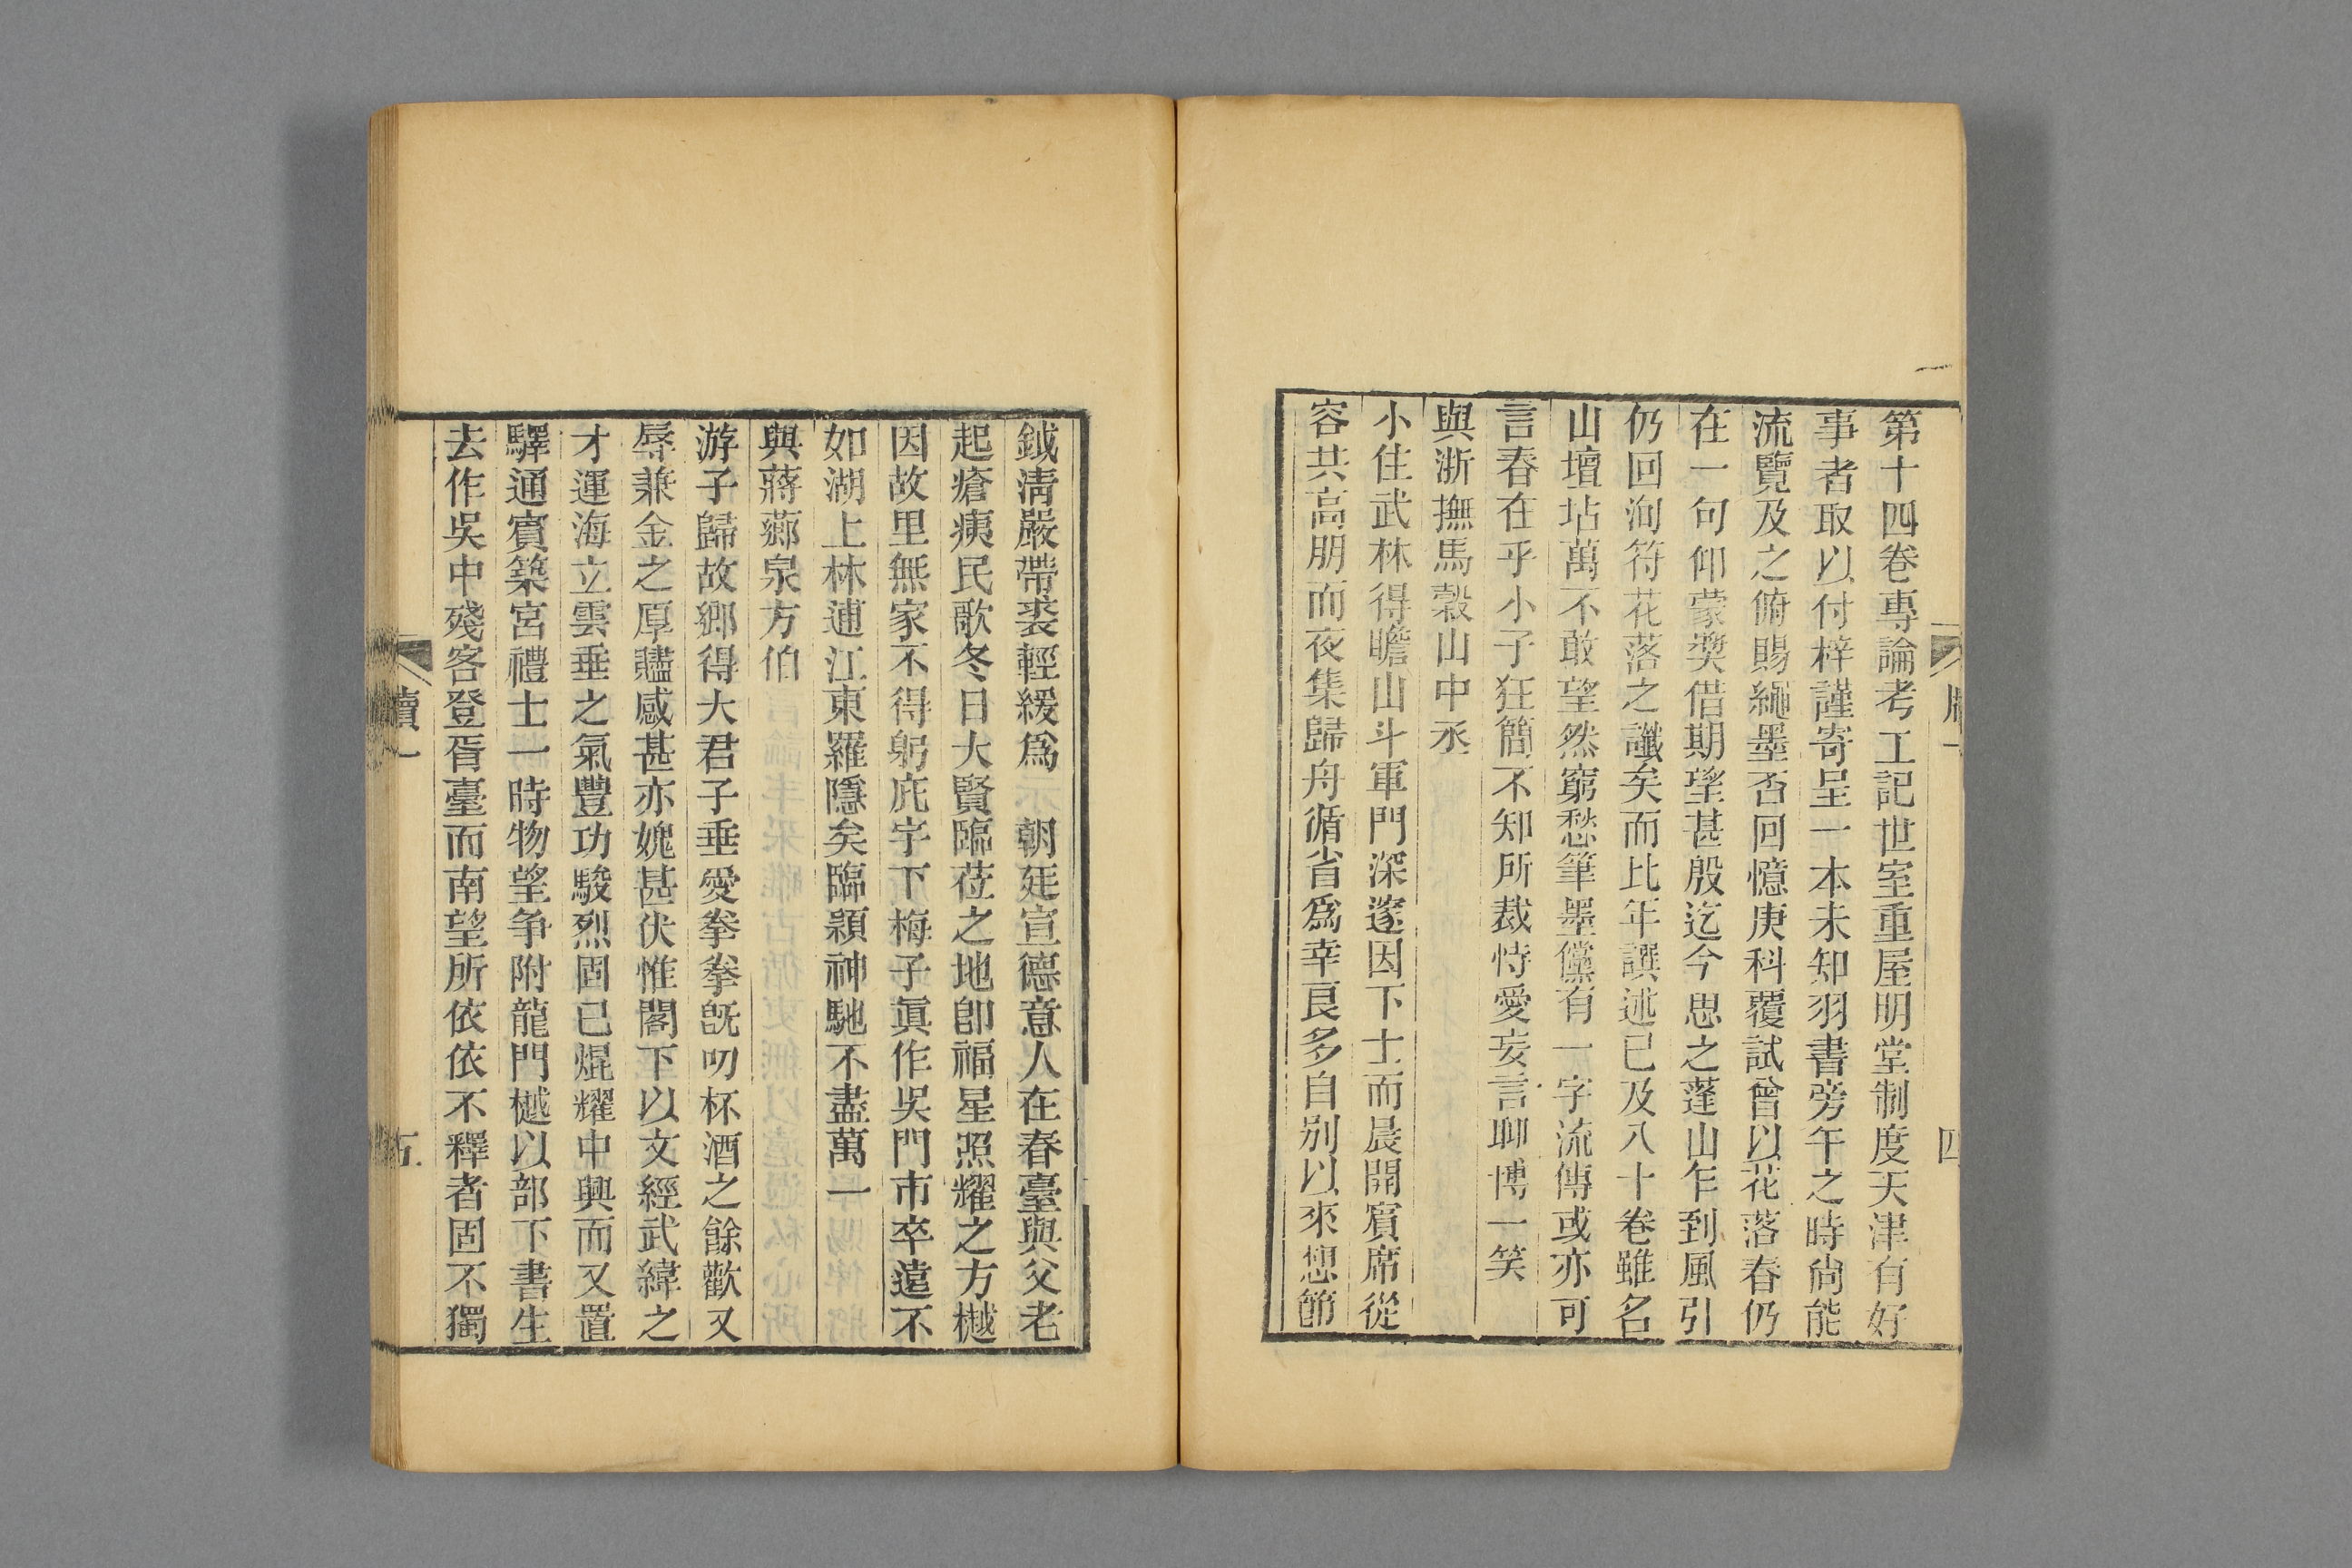 第十四卷專論考工記世室重屋明堂制度天津有好
事者取以付梓謹寄呈一本未知羽書旁午之時尙能
流覽及之俯賜繩墨否回憶庚科覆試曾以花落春仍
在一句仰蒙奬借期望甚殷迄今思之蓬山乍到風引
仍回洵符花落之讖矣而比年譔述已及八十卷雖名
山壇坫萬不敢望然窮愁筆墨儻有一字流傳或亦可
言春在乎小子狂簡不知所裁恃愛妄言聊博一笑
與浙撫馬穀山中丞
小住武林得瞻山斗軍門深邃因下士而晨開賓席從
容共高朋而夜集歸舟循省爲幸良多自别以來想節
四
鉞淸嚴帶裘輕緩爲 朝廷宣德意人在春臺與父老
起瘡痍民歌冬日大賢臨莅之地卽福星照耀之方樾
因故里無家不得躬庇宇下梅子眞作吳門市卒遠不
如湖上林逋江東羅隱矣臨穎神馳不盡萬一
與蔣薌泉方伯
游子歸故鄉得大君子垂愛拳拳旣叨杯酒之餘歡又
辱兼金之厚贐感甚亦媿甚伏惟閣下以文經武緯之
才運海立雲垂之氣豐功駿烈固已焜耀中興而又置
驛通賓築宮禮士一時物望争附龍門樾以部下書生
去作吳中殘客登胥臺而南望所依依不釋者固不獨
牘一
五